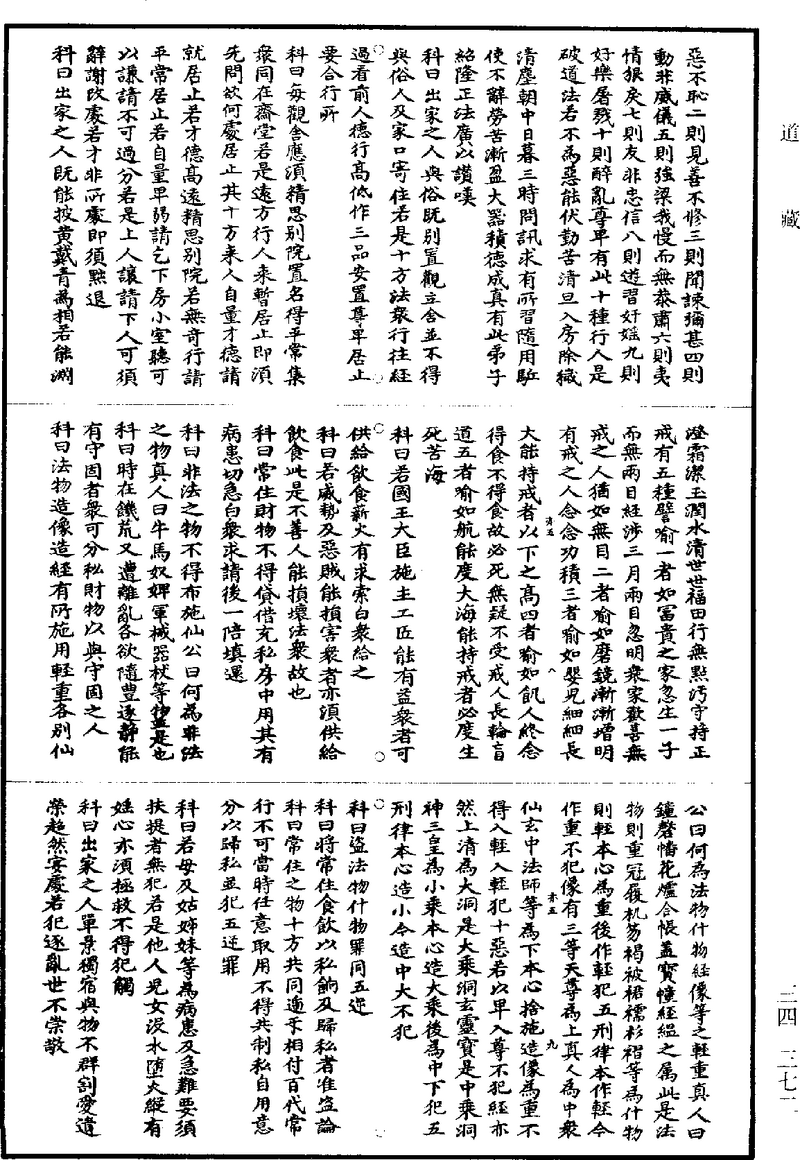 道藏
三四·三七二
惡不恥二則見善不修三則聞諫彌甚四則
動非威儀五則強梁我慢而無恭肅六則夷
情狠戾七則友非忠信八則遊習奸婬九則
好樂屠戮十則醉亂尊卑有此十種行人是
破道法若不為惡能伏勤苦清旦入房除穢
清塵朝中日暮三時問訊求有所習隨用駈
使不辭勞苦漸盈大器積德成真有此弟子
紹隆正法廣以讚嘆
科曰出家之人與俗既別置觀立舍並不得
與俗人及家口寄住若是十方法衆行往經
過看前人德行高低作三品安置尊卑居止
要合行所
科曰每觀舍應須精思別院置名得平常集
衆同在齋堂若是遠方行人來暫居止即須
先問欲何處居止其十方來人自量才德請
就居止若才德高遠精思別院若無奇行請
平常居止若自量卑弱請乞下房小室聽可
以謙請不可過分若是上人讓請下人可須
辭謝改處若才非所處即須點退
科曰出家之人既能披黃戴青為相若能淵
澄霜潔玉潤水清世世福田行無點污守持正
戒有五種譬喻一者如富貴之家忽生一子
而無兩目経涉三月兩目忽明衆家歡喜無
戒之人猶如無目二者喻如磨鏡漸漸增明
有戒之人念念功積三者喻如嬰兒細細長
大能持戒者以下之高四者喻如飢人終念
得食不得食故必死無疑不受戒人長輪盲
道五者喻如航能度大海能持戒者必度生
死苦海
科曰若國王大臣施主工匠能有益衆者可
供給飲食薪火有求索白衆給之
科曰若威勢及惡賊能損害衆者亦須供給
飲食此是不善人能損壞法衆故也
科曰常住財物不得貸借充私房中用其有
病患切急白衆求請後一倍填還
科曰非法之物不得布施仙公曰何為非法
之物真人曰牛馬奴婢軍械器杖等物並是也
科曰時在饑荒又遭離亂各欲隨豊逐靜能
有守固者衆可分私財物以與守固之人
科曰法物造像造経有所施用輕重各別仙
公曰何為法物什物経像等之輕重真人曰
鐘磬幡花爐合帳蓋寶幢経緼之属此是法
物則重冠履机笏褐被裙襦衫褶等為什物
則輕本心為重後作輕犯五刑律本作輕今
作重不犯像有三等天尊為上真人為中衆
仙玄中法師等為下本心捨施造像為重不
得入輕入輕犯十惡若以卑入尊不犯経亦
然上清為大洞是大乘洞玄靈寶是中乘洞
神三皇為小乘本心造大乘後為中下犯五
刑律本心造小今造中大不犯
科曰盜法物什物罪同五逆
科曰將常住食飲以私餉及歸私者准盜論
科曰常住之物十方共同遞手相付百代常
行不可當時任意取用不得共制私自用意
分以歸私並犯五逆罪
科曰若母及姑姊妹等為病患及急難要須
扶提者無犯若是他人兒女沒水墮火縱有
婬心亦須拯救不得犯觸
科曰出家之人單景獨宿與物不群割愛遺
榮超然安處若犯逐亂世不崇敬